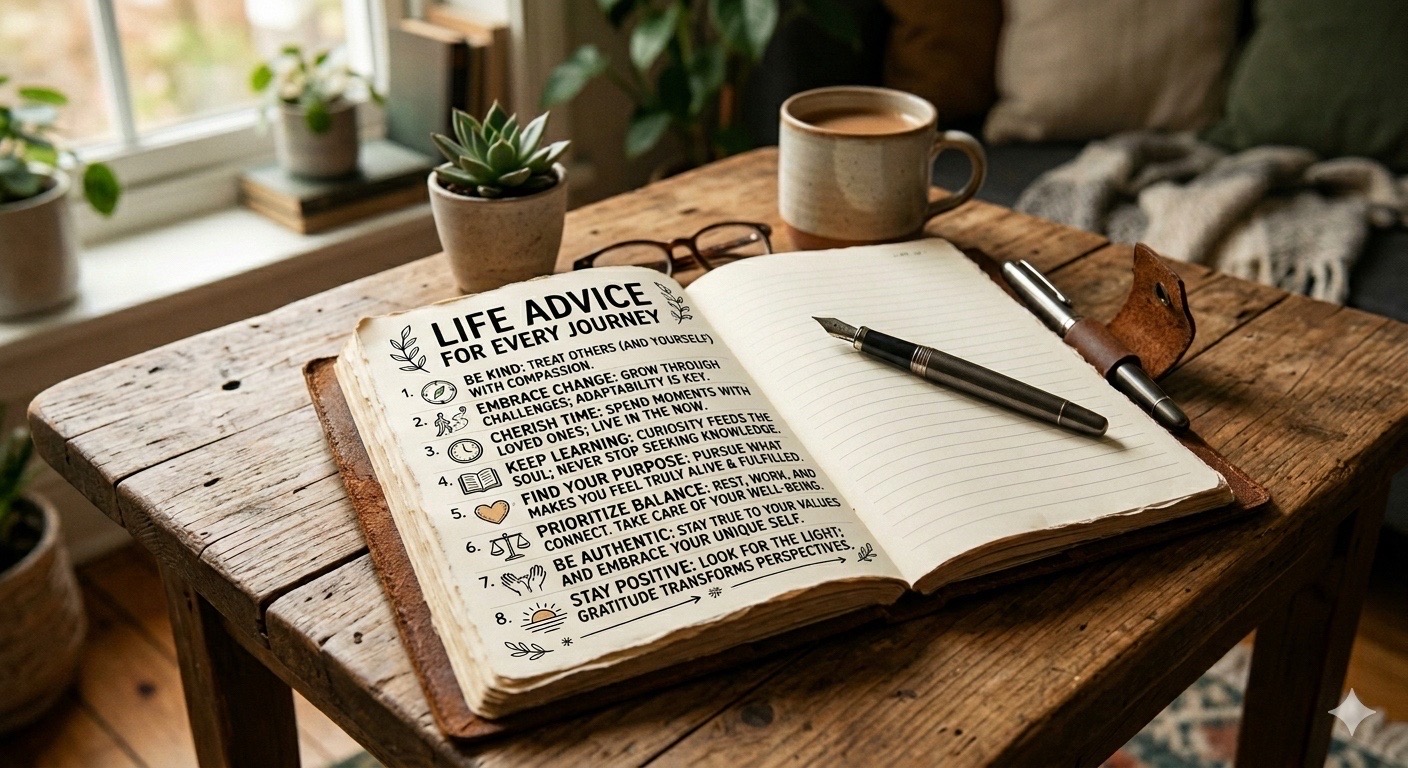 LIFE ADVICE
FOR EVERY JOURNEY
1. BE KIND: TREAT OTHERS (AND YOURSELF)
WITH COMPASSION.
2. EMBRACE CHANGE: GROW THROUGH
CHALLENGES; ADAPTABILITY IS KEY.
3. CHERISH TIME: SPEND MOMENTS WITH
LOVED ONES; LIVE IN THE NOW.
4. KEEP LEARNING: CURIOSITY FEEDS THE
SOUL; NEVER STOP SEEKING KNOWLEDGE.
5. FIND YOUR PURPOSE: PURSUE WHAT
MAKES YOU FEEL TRULY ALIVE & FULFILLED.
6. PRIORITIZE BALANCE: REST, WORK, AND
CONNECT. TAKE CARE OF YOUR WELL-BEING.
7. BE AUTHENTIC: STAY TRUE TO YOUR VALUES
AND EMBRACE YOUR UNIQUE SELF.
8. STAY POSITIVE: LOOK FOR THE LIGHT;
GRATITUDE TRANSFORMS PERSPECTIVES.